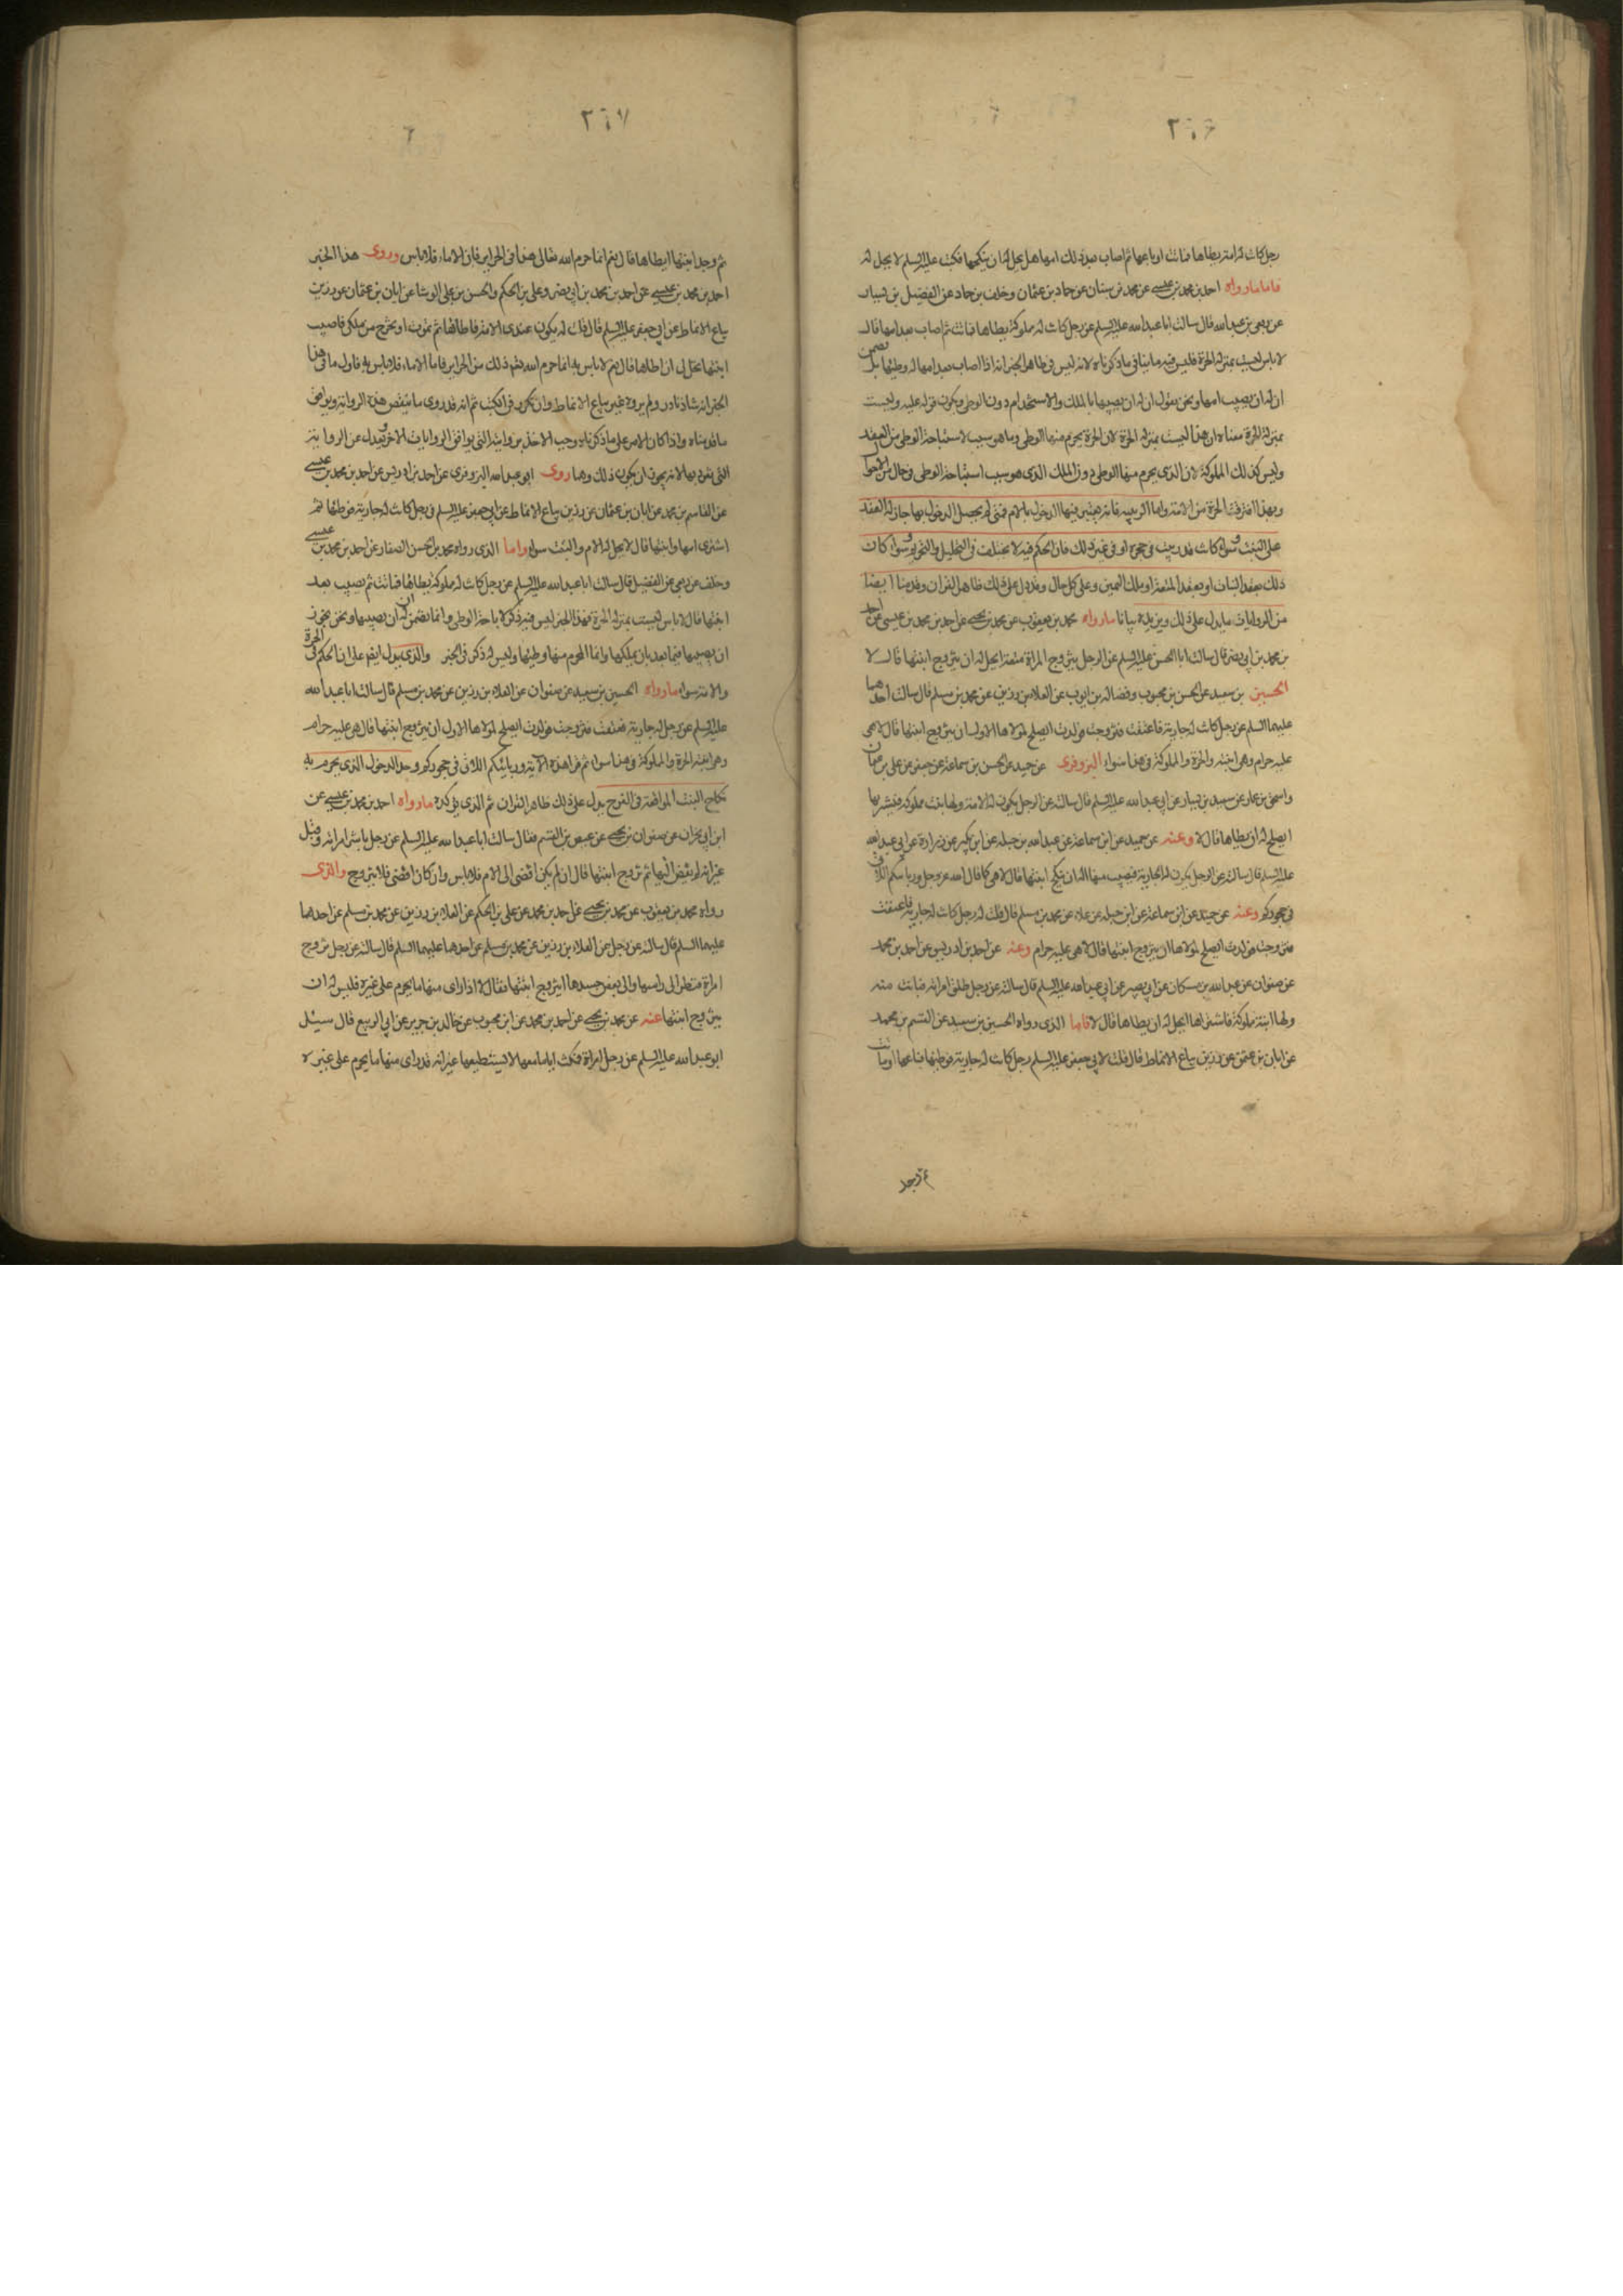 ٢٠٦
رجل كانت له امة يطاها فماتت او باعها ثم اصاب بعد ذلك امها هل يحل له ان ينكحها فكتب عليه السلم لا يحل له
فاما مارواه احمد بن محمد بن عيسى عن محمد بن سنان عن حماد بن عثمان وخلف بن حماد عن الفضيل بن يسار
عن ربعى بن عبد الله قال سالت ابا عبد الله عليه السلم عن رجل كانت له مملوكة يطاها فماتت ثم اصاب بعد امها قال
لا باس ليست بمنزلة الحرة فليس فيه ما ينافى ما ذكرناه لانه ليس فى ظاهر الخبر انه اذا اصاب بعد امها له وطيها بل تضمن
ان له ان يصيب امها ونحن نقول ان له ان يصيبها بالملك والاستخدام دون الوطى ويكون قوله عليه وليست
بمنزلة الحرة معناه ان هذا ليست بمنزلة الحرة لان الحرة يحرم منها الوطى وما هو سبب لاستباحة الوطى من العقد
وليس كذلك المملوكة لان الذى يحرم منها الوطى دون الملك الذى هو سبب استباحة الوطى فى حال من الاحوال
وبهذا افترقت الحرة من الامة واما الربيبه فانه يعتبر فيها الدخول بالام فمتى لم يحصل الدخول بها جاز له العقد
على البنت وسواء كانت قد ربيت فى حجره او فى غير ذلك فان الحكم فيه لا يختلف فى التحليل والتحريم وسواء كان
ذلك بعقد البنات او بعقد المتعة او بملك اليمين وعلى كل حال وقد دل على ذلك ظاهر القران وقدمنا ايضا
من الروايات ما يدل على ذلك ويزيده بيانا مارواه محمد بن يعقوب عن محمد بن يحيى عن احمد بن محمد بن عيسى عن احمد
بن محمد بن ابى نصر قال سالت ابا الحسن عليه السلم عن الرجل يتزوج المراة متعة ايحل له ان يتزوج ابنتها قال لا
الحسين بن سعيد عن الحسن بن محبوب وفضالة بن ايوب عن العلاء بن رزين عن محمد بن مسلم قال سالت احدهما
عليهما السلم عن رجل كانت له جارية فاعتقت فتزوجت فولدت ايصلح لمولاها الاول ان يتزوج ابنتها قال لا هى
عليه حرام وهى ابنته والحرة والمملوكة فى هذا سواء البزوفرى عن حميد عن الحسن بن سماعة عن جعفر عن على بن عثمان
واسحق بن عمار عن سعيد بن يسار عن ابى عبد الله عليه السلم قال سالته عن الرجل يكون له الامة ولها بنت مملوكة فيشتريها
ايصلح له ان يطاها قال لا وعنه عن حميد عن ابن سماعة عن عبد الله بن جبله عن ابن بكير عن زرارة عن ابى عبد الله
عليه السلم قال سالته عن الرجل يكون له الجارية فيصيب منها اله ان ينكح ابنتها قال لا هى كما قال الله عز وجل وربائبكم اللاتى
فى حجوركم وعنه عن حميد عن ابن سماعة عن ابن جبله عن علاء عن محمد بن مسلم قال قلت له رجل كانت له جارية فاعتقت
فتزوجت فولدت ايصلح لمولاها ان يتزوج ابنتها قال لا هى عليه حرام وعنه عن احمد بن ادريس عن احمد بن محمد
عن صفوان عن عبد الله بن مسكان عن ابى بصير عن ابى عبد الله عليه السلم قال سالته عن رجل طلق امراته فبانت منه
ولها ابنة مملوكة فاشتراها ايحل له ان يطاها قال لا فاما الذى رواه الحسين بن سعيد عن القسم بن محمد
عن ابان بن عثمن عن رزين بياع الانماط قال قلت لابى جعفر عليه السلم رجل كانت له جارية فوطيها فباعها او ماتت
ثم وجد
٢٠٧
ثم وجد ابنتها ايطاها قال نعم انما حرم الله تعالى هذا فى الحراير فاما الاماء فلا باس وروى هذا الخبر
احمد بن محمد بن عيسى عن احمد بن محمد بن ابى نصر وعلى بن الحكم والحسن بن على الوشا عن ابان بن عثمان عن رزين
بياع الانماط عن ابى جعفر عليه السلم قال قلت له يكون عندى الامة فاطاها ثم تموت او تخرج من ملكى فاصيب
ابنتها يحل لى ان اطاها قال نعم لا باس به انما حرم الله ذلك من الحراير فاما الاماء فلا باس به فاول ما فى هذا
الخبر انه شاذ نادر ولم يروه غير بياع الانماط وان تكرر فى الكتب ثم انه قد روى ما ينقض هذه الرواية ويوافق
ما قدمناه واذا كان الامر على ما ذكرناه وجب الاخذ بروايته التى يوافق الروايات الاخر ويعدل عن الرواية
التى تفرد بها لانه يجوز ان يكون ذلك وهما روى ابو عبد الله البزوفرى عن احمد بن ادريس عن احمد بن محمد بن عيسى
عن القاسم بن محمد عن ابان بن عثمان عن رزين بياع الانماط عن ابى جعفر عليه السلم فى رجل كانت له جارية فوطيها ثم
اشترى امها وابنتها قال لا يحل له الام والبنت سواء واما الذى رواه محمد بن الحسن الصفار عن احمد بن محمد بن عيسى
وخلف عن ربعى عن الفضيل قال سالت ابا عبد الله عليه السلم عن رجل كانت له مملوكة يطاها فماتت ثم يصيب بعد
ابنتها قال لا باس ليست بمنزلة الحرة فهذا الخبر ليس فيه ذكر لاباحة الوطى وانما تضمن ان له ان يصيبها ونحن نجوز
ان يصيبها فيما بعد بان يملكها وانما المحرم منها وطيها وليس له ذكر فى الخبر والذى يدل ايضا على ان الحكم فى الحرة
والامة سواء مارواه الحسين بن سعيد عن صفوان عن العلاء بن رزين عن محمد بن مسلم قال سالت ابا عبد الله
عليه السلم عن رجل له جارية فعتقت فتزوجت فولدت ايصلح لمولاها الاول ان يتزوج ابنتها قال هى عليه حرام
وهى ابنته الحرة والمملوكة فى هذا سواء ثم قرا هذه الاية وربائبكم اللاتى فى حجوركم وحد الدخول الذى يحرم به
نكاح البنت المواقعة فى الفرج يدل على ذلك ظاهر القران ثم الذى يؤكده مارواه احمد بن محمد بن عيسى عن
ابن ابى نجران عن صفوان بن يحيى عن عيص بن القسم فقال سالت ابا عبد الله عليه السلم عن رجل باشر امراته وقبل
غير انه لم يفض اليها ثم تزوج ابنتها قال ان لم يكن افضى الى الام فلا باس وان كان افضى فلا يتزوج والذى
رواه محمد بن يعقوب عن محمد بن يحيى عن احمد بن محمد عن على بن الحكم عن العلاء بن رزين عن محمد بن مسلم عن احدهما
عليهما السلم قال سالته عن رجل عن العلاء بن رزين عن محمد بن مسلم عن احدهما عليهما السلم قال سالته عن رجل تزوج
امراة فنظر الى راسها والى بعض جسدها ايتزوج ابنتها فقال لا اذا راى منها ما يحرم على غيره فليس له ان
يتزوج ابنتها عنه عن محمد بن يحيى عن احمد بن محمد عن ابن محبوب عن خالد بن جرير عن ابى الربيع قال سئل
ابو عبد الله عليه السلم عن رجل امراة فمكث اياما معها لا يستطيعها غير انه قد راى منها ما يحرم على غيره